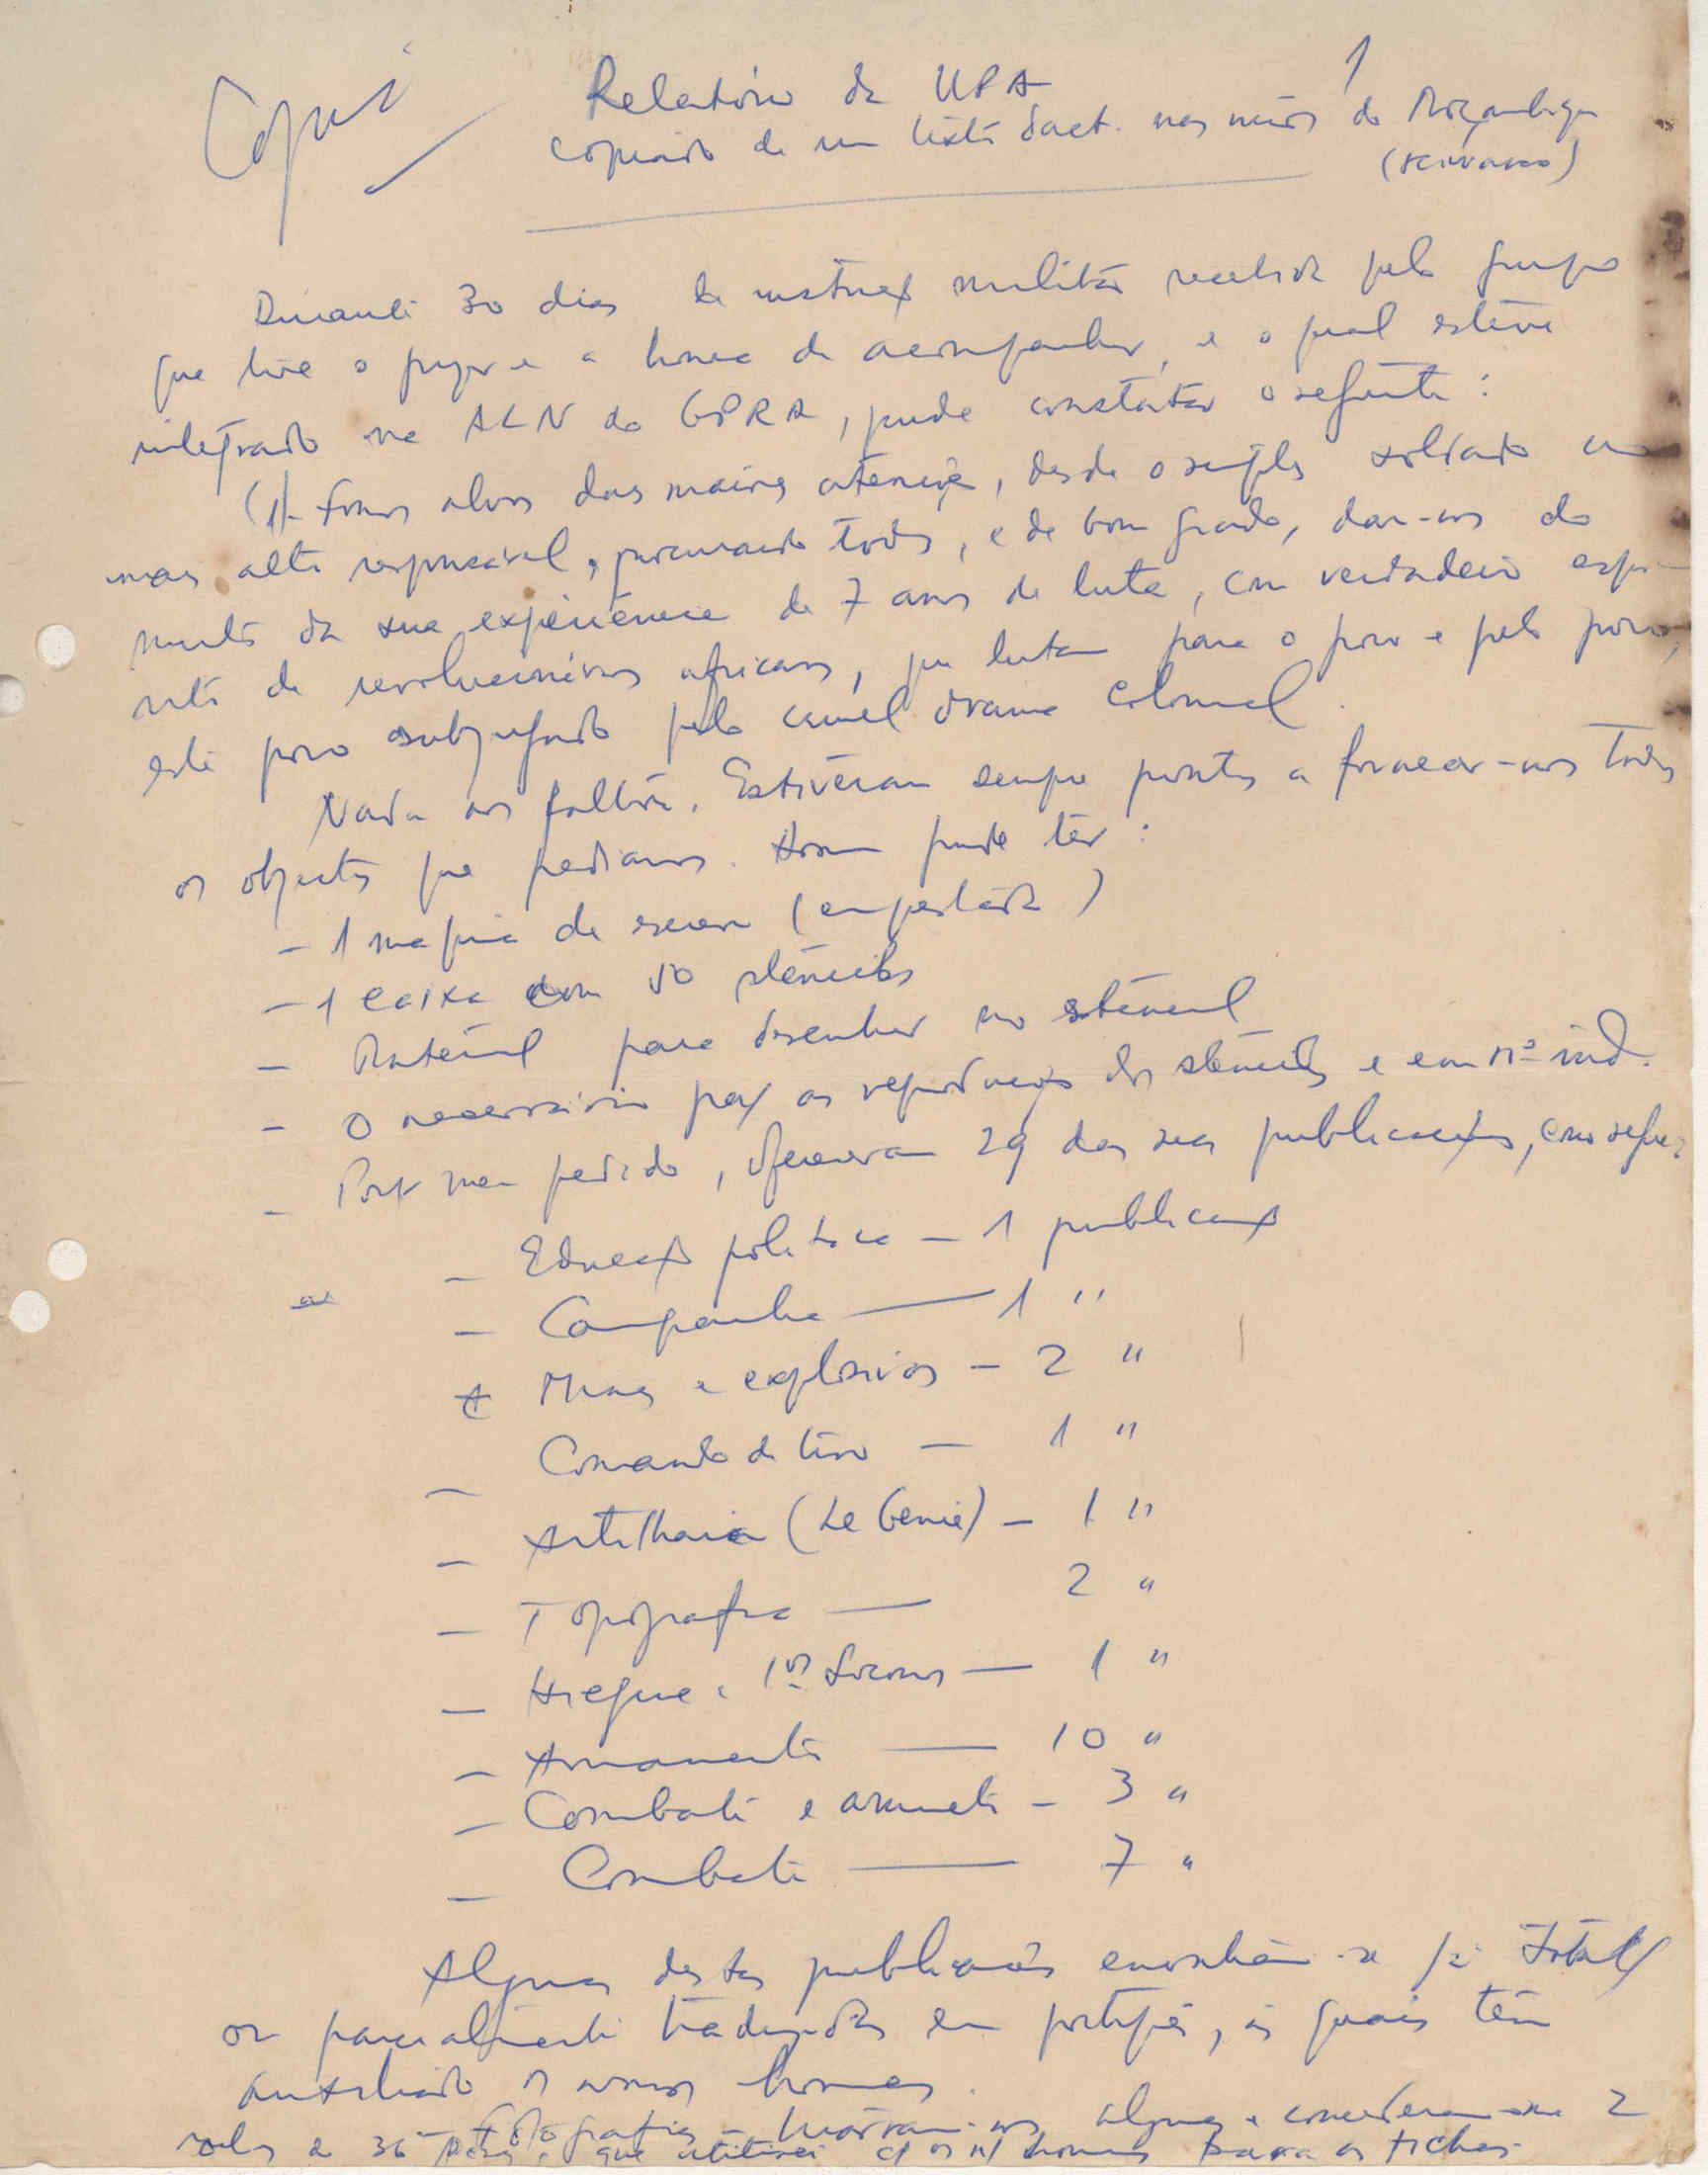 Copia
1
Relatório da UPA
copiado de um texto dact. nas mãos do Moçambique
Durante 30 dias de instrução militar recebida pelo grupo
que tive o prazer e a honra de acompanhar, e o qual esteve
integrado na ALN do GPRA, pude constatar o seguinte:
(1)- Fomos alvos das maiores atenções, desde o simples soldado ao
mais alto responsável, procurando todos, e de bom grado, dar-nos do
muito da sua experiência de 7 anos de luta, com verdadeiro espí-
rito de revolucionários africanos, que lutam para o povo e pelo povo,
este povo subjugado pelo cruel drama colonial.
Nada nos faltou. Estiveram sempre prontos a fornecer-nos todos
os objectos que pedíamos. Assim pude ter:
- 1 maquina de escrever (emprestada)
- 1 caixa com 50 stencils
- Material para desenhar no stencil
- O necessário para as reproduções dos stencils e em nº ind.
- Por meu pedido, ofereceram 29 das suas publicações, como segue:
- Educação politica - 1 publicação
- Campanha — 1 "
Minas e explosivos - 2 "
- Comando de tiro - 1 "
- Artilharia (Le Genie) - 1 "
- Topografia — 2 "
- Higiene e 1os Socorros — 1 "
- Armamento — 10 "
- Combate e armamento - 3 "
- Combate — 7 "
Algumas destas publicações encontram-se já total
ou parcialmente traduzidas em português, as quais têm
auxiliado os nossos homens.
- Fotografias - tiraram-nos algumas e concederam-me 2
rolos de 36 que utilizei c/ os n/ homens para as fichas.